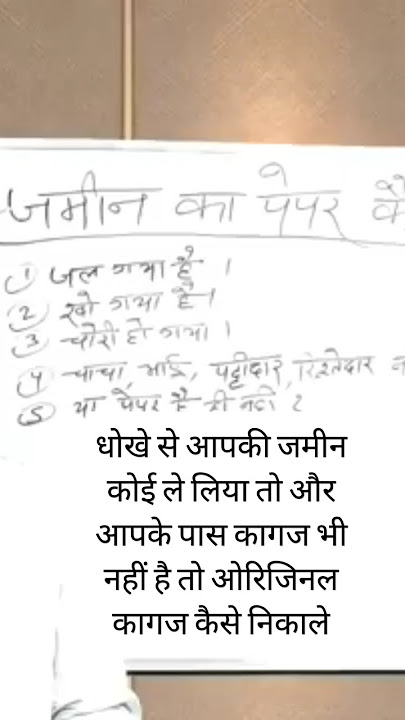 जमीन का पेपर
① जल गया है ।
② खो गया है ।
③ चोरी हो गया ।
④ चाचा, भाई, पट्टीदार, रिश्तेदार
⑤ या पेपर है ही नहीं ?
धोखे से आपकी जमीन
कोई ले लिया तो और
आपके पास कागज भी
नहीं है तो ओरिजिनल
कागज कैसे निकाले